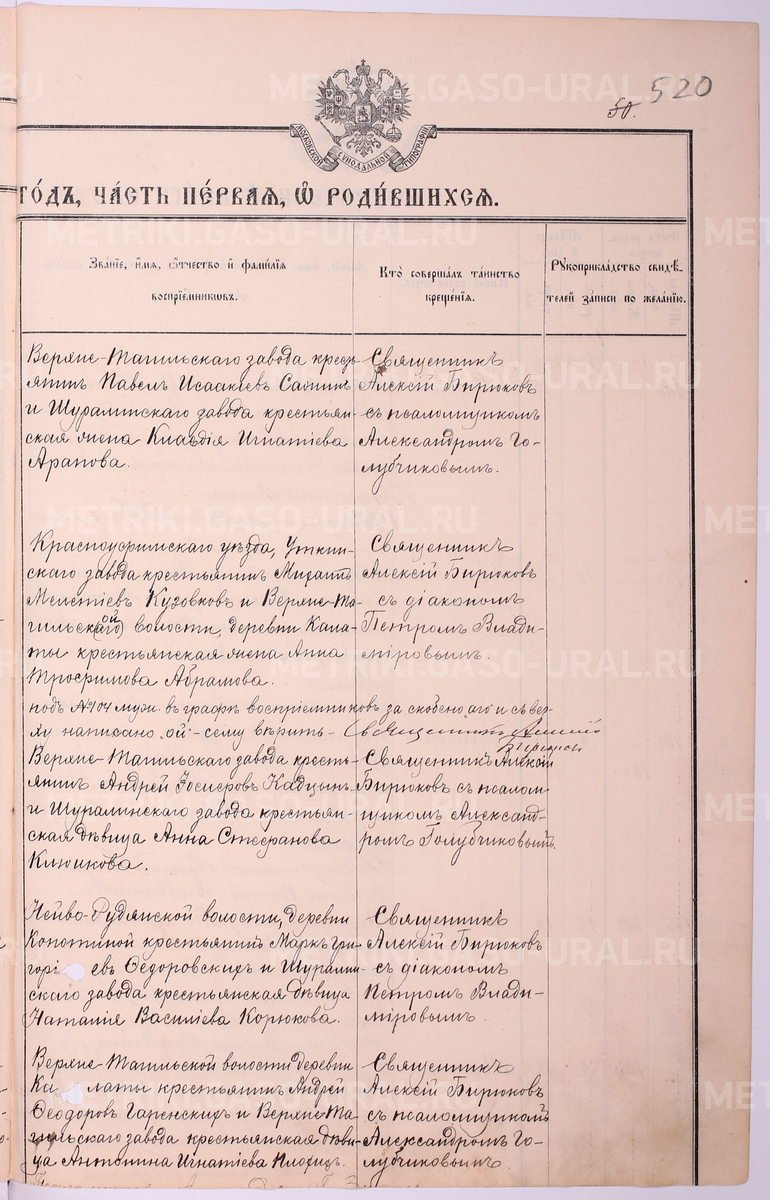 50. 520
МОСКОВСКОЙ СѴНОДАЛЬНОЙ ТИПОГРАФІИ
ГО́ДЪ, ЧА́СТЬ ПЕ́РВАЯ, Ѡ҆ РОДИ́ВШИХСЯ.
Зва́ніе, и҆́мя, ѻ҆́тчество и҆ фами́лія
воспріе́мникѡвъ.
Кто̀ соверша́лъ та́инство
креще́нія.
Рꙋкоприкла́дство свидѣ́-
телей за́писи по жела́нію.
Верхне-Тагильскаго завода кресть-
янинъ Павелъ Исаакіевъ
и Шуралинскаго завода крестьян-
ская жена Клавдія Игнатіева
Арапова.
Священникъ
Алексій Бирюковъ
съ псаломщикомъ
Александромъ Го-
лубчиковымъ.
Красноуфимскаго уѣзда, Уткин-
скаго завода крестьянинъ Михаилъ
Кузовковъ и Верхне-Та-
гильск(аго)ой волости, деревни Кала-
ты крестьянская жена Анна
Трофимова Абрамова.
Священникъ
Алексій Бирюковъ
съ діакономъ
Петромъ Влади-
міровымъ.
подъ №104 муж. въ графѣ воспріемниковъ за скобено „аго“ и свер-
ху написано „ой“ - сему вѣрить - Священникъ Алексій
Бирюковъ
Верхне-Тагильскаго завода кресть-
янинъ Андрей Іосифовъ Кадцынъ
и Шуралинскаго завода крестьян-
ская дѣвица Анна Стефанова
Клюикова.
Священникъ Алексій
Бирюковъ съ псалом-
щикомъ Александ-
ромъ Голубчиковымъ.
Нейво-Рудянской волости, деревни
Копотиной крестьянинъ Маркъ Гри-
горіевъ Ѳедоровскихъ и Шуралин-
скаго завода крестьянская дѣвица
Наталія Василіева Корюкова.
Священникъ
Алексій Бирюковъ
съ діакономъ
Петромъ Влади-
міровымъ.
Верхне-Тагильской волости деревни
Ка латы крестьянинъ Андрей
Ѳеодоровъ Гаренскихъ и Верхне-Та-
гильскаго завода крестьянская дѣви-
ца Антонина Игнатіева Плохихъ.
Священникъ
Алексій Бирюковъ
съ псаломщикомъ
Александромъ Го-
лубчиковымъ.
METRIKI.GASO-URAL.RU